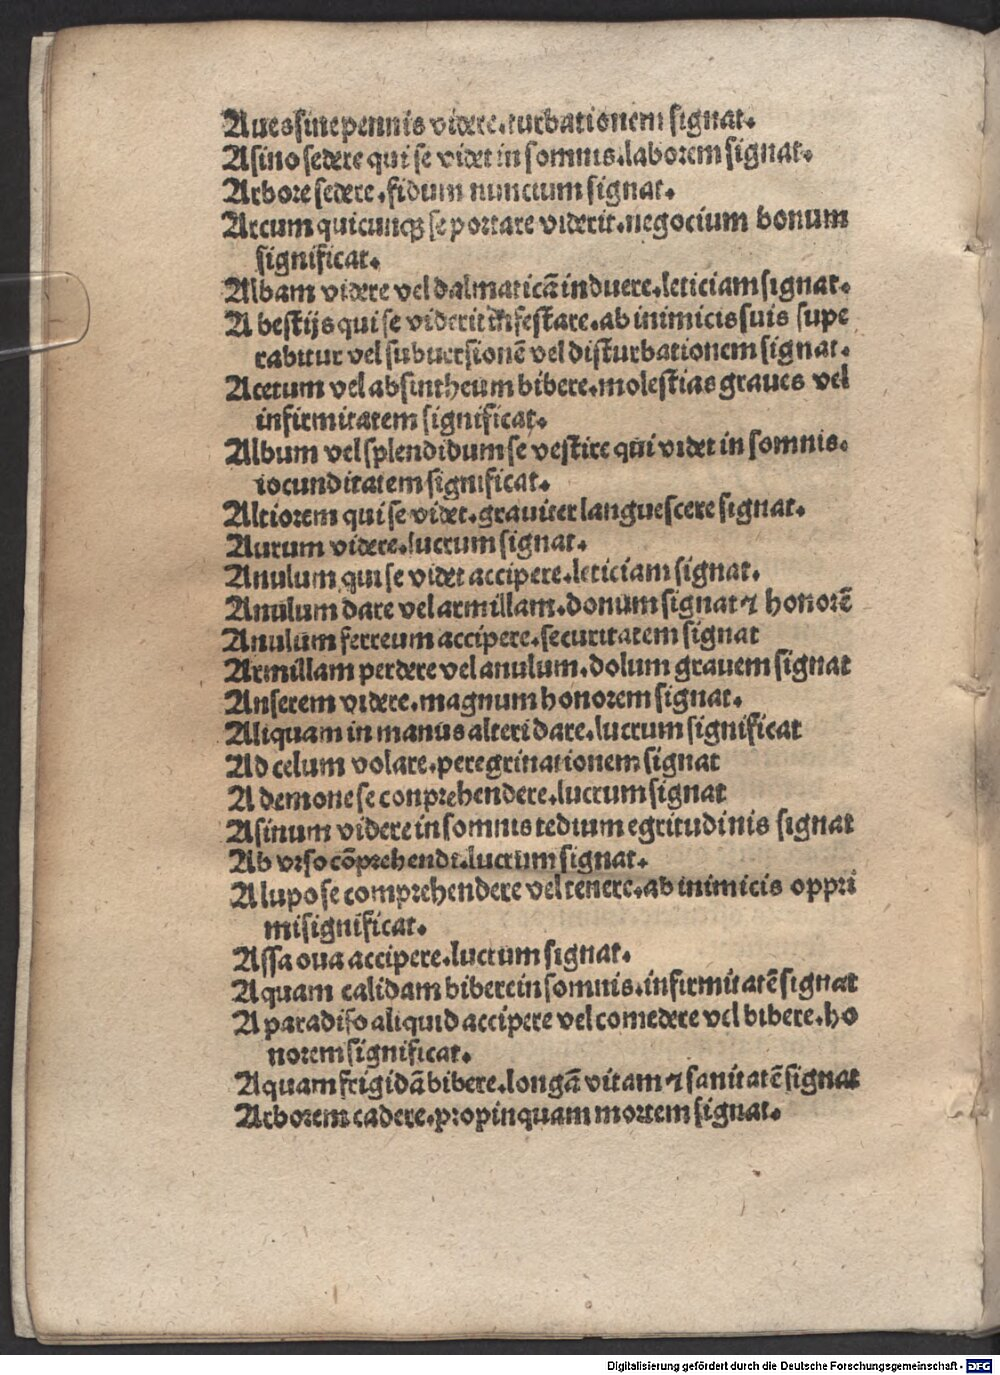 Aues sine pennis videre.turbationem signat.
Asino sedere qui se videt in somnis.laborem signat.
Arbore sedere.fidum nuncium signat.
Arcum quicunqȝ se portare viderit.negocium bonum
significat.
Albam videre vel dalmaticā induere.leticiam signat.
A bestijs qui se viderit īfestare.ab inimicis suis supe
rabitur vel subuersionē vel disturbationem signat.
Acetum vel absintheum bibere.molestias graues vel
infirmitatem significat.
Album vel splendidum se vestire qui videt in somnis.
iocunditatem significat.
Altiorem qui se videt.grauiter languescere signat.
Aurum videre.lucrum signat.
Anulum qui se videt accipere.leticiam signat.
Anulum dare vel armillam.donum signat ⁊ honorē
Anulum ferreum accipere.securitatem signat
Armillam perdere vel anulum.dolum grauem signat
Anserem videre.magnum honorem signat.
Aliquam in manus alteri dare.lucrum significat
Ad celum volare.peregrinationem signat
A demone se conprehendere.lucrum signat
Asinum videre in somnis tedium egritudinis signat
Ab vrso cōprehendi.lucrum signat.
A lupo se comprehendere vel tenere.ab inimicis oppri
mi significat.
Assa oua accipere.luctum signat.
Aquam calidam bibere in somnis.infirmitatē signat
A paradiso aliquid accipere vel comedere vel bibere.ho
norem significat.
Aquam frigidā bibere.longā vitam ⁊ sanitatē signat
Arborem cadere.propinquam mortem signat.
Digitalisierung gefördert durch die Deutsche Forschungsgemeinschaft - DFG